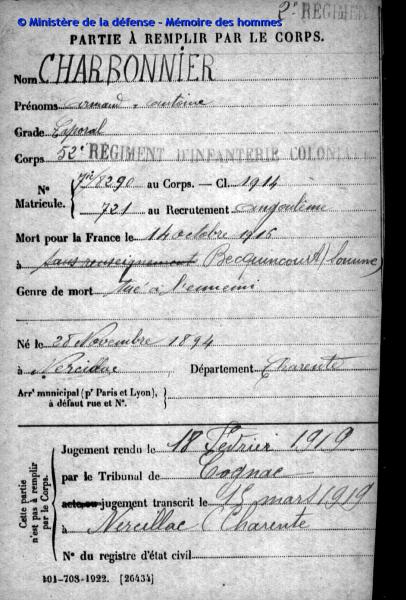 © Ministère de la défense - Mémoire des hommes
2e REGIMENT
PARTIE À REMPLIR PAR LE CORPS.
Nom CHARBONNIER
Prénoms Armand Antoine
Grade Caporal
Corps 52e REGIMENT D'INFANTERIE COLONIALE
N° Matricule. 8290 au Corps. — Cl. 1914
721 au Recrutement Angoulême
Mort pour la France le 14 octobre 1916
à Sans renseignement Becquincourt (Somme)
Genre de mort Tué à l'ennemi
Né le 28 Novembre 1894
à Nercillac Département Charente
Arrt municipal (pr Paris et Lyon), à défaut rue et N°.
Cette partie n'est pas à remplir par le Corps.
Jugement rendu le 18 Février 1919
par le Tribunal de Cognac
acte ou jugement transcrit le 18 mars 1919
à Nercillac Charente
N° du registre d'état civil
101-708-1922. [26434]